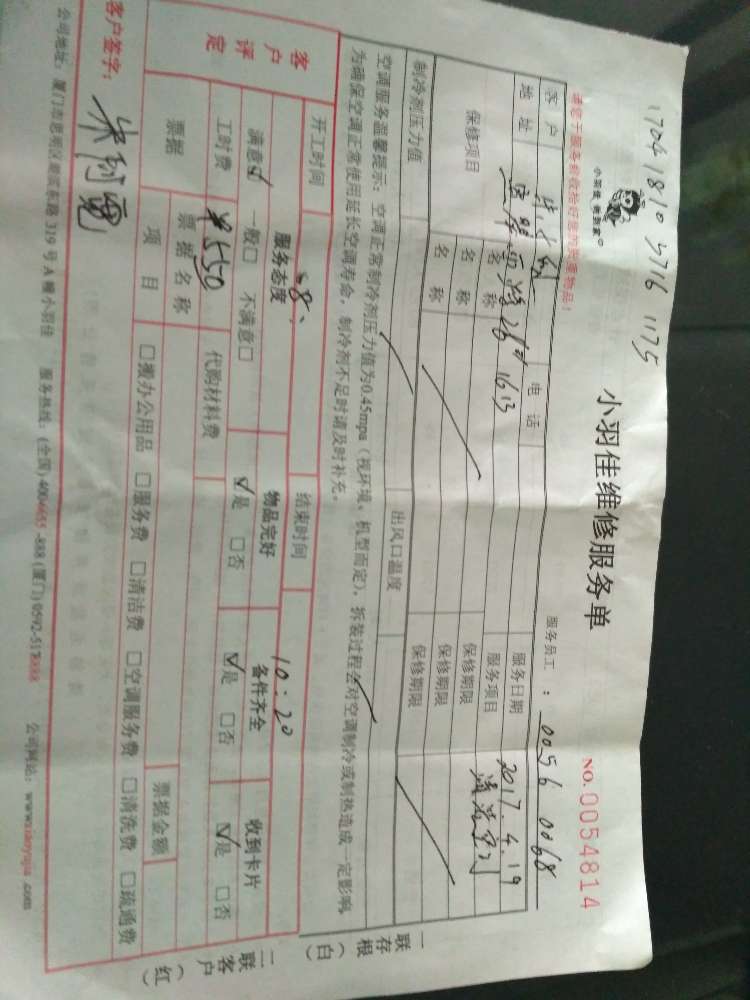 1704 1810 5716 1175
小羽佳 做到家
小羽佳维修服务单
NO. 0054814
请您于服务前收拾好您的贵重物品！
服务员工 ： 0056 0068
客户 电话 服务日期 2017.4.19
地址 1613 服务项目 清洗空调
保修项目 名称 保修期限
名称 保修期限
名称 保修期限
制冷剂压力值 出风口温度
空调服务温馨提示：空调正常制冷剂压力值为0.45mpa（视环境、机型而定），拆装过程会对空调制冷或制热造成一定影响，
为确保空调正常使用延长空调寿命，制冷剂不足时请及时补充。
开工时间 8: 结束时间 10:20
客户评定 服务态度 物品完好 备件齐全 收到卡片
满意☑ 一般□ 不满意□ ☑是 □否 ☑是 □否 ☑是 □否
工时费 ¥550 代购材料费
票据 票据名称 票据金额
项目 □搬办公用品 □服务费 □清洁费 □空调服务费 □清洗费 □疏通费
客户签字：
公司地址：厦门市思明区湖滨东路 319 号 A 幢小羽佳 服务热线：(全国) 4004655-888 (厦门) 0592-5178888 公司网站：www.xiaoyujia.com
一联存根（白）
二联客户（红）